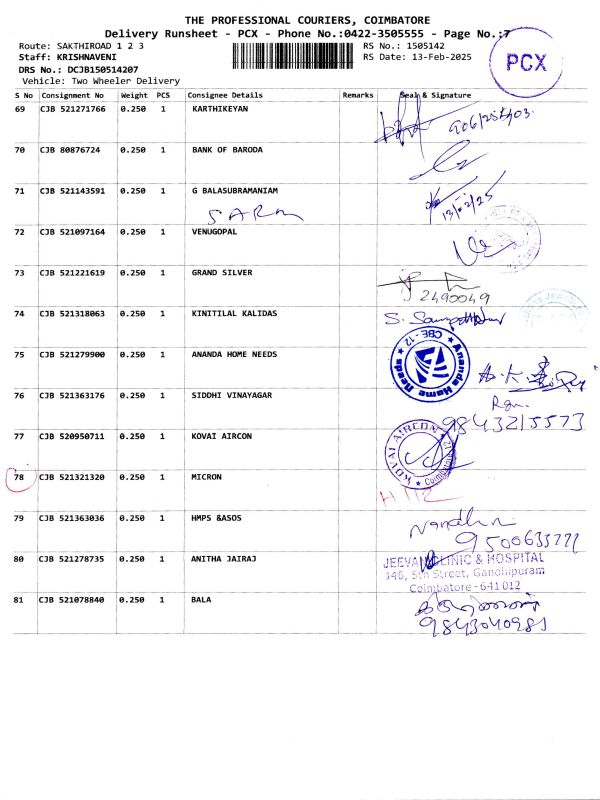 THE PROFESSIONAL COURIERS, COIMBATORE
Delivery Runsheet - PCX - Phone No.:0422-3505555 - Page No.:7
Route: SAKTHIROAD 1 2 3
RS No.: 1505142
Staff: KRISHNAVENI
RS Date: 13-Feb-2025
PCX
DRS No.: DCJB150514207
Vehicle: Two Wheeler Delivery
S No Consignment No Weight PCS Consignee Details Remarks Seal & Signature
69 CJB 521271766 0.250 1 KARTHIKEYAN
70 CJB 80876724 0.250 1 BANK OF BARODA
71 CJB 521143591 0.250 1 G BALASUBRAMANIAM
13/02/25
72 CJB 521097164 0.250 1 VENUGOPAL
73 CJB 521221619 0.250 1 GRAND SILVER
2490049
74 CJB 521318063 0.250 1 KINITILAL KALIDAS
75 CJB 521279900 0.250 1 ANANDA HOME NEEDS
Ananda Home Needs
CBE - 12
76 CJB 521363176 0.250 1 SIDDHI VINAYAGAR
9843215573
77 CJB 520950711 0.250 1 KOVAI AIRCON
KOVAI AIRCON
78 CJB 521321320 0.250 1 MICRON
79 CJB 521363036 0.250 1 HMPS &ASOS
80 CJB 521278735 0.250 1 ANITHA JAIRAJ
JEEVAN CLINIC & HOSPITAL
346, 5th Street, Gandhipuram
Coimbatore - 641 012
81 CJB 521078840 0.250 1 BALA
9843040981